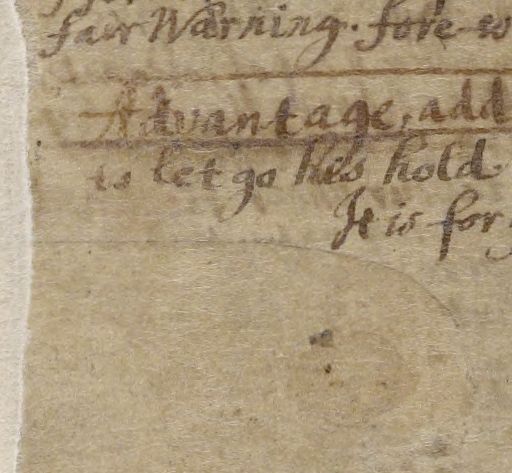 fair Warning. fore-
Advantage, add
to let go his hold
It is for